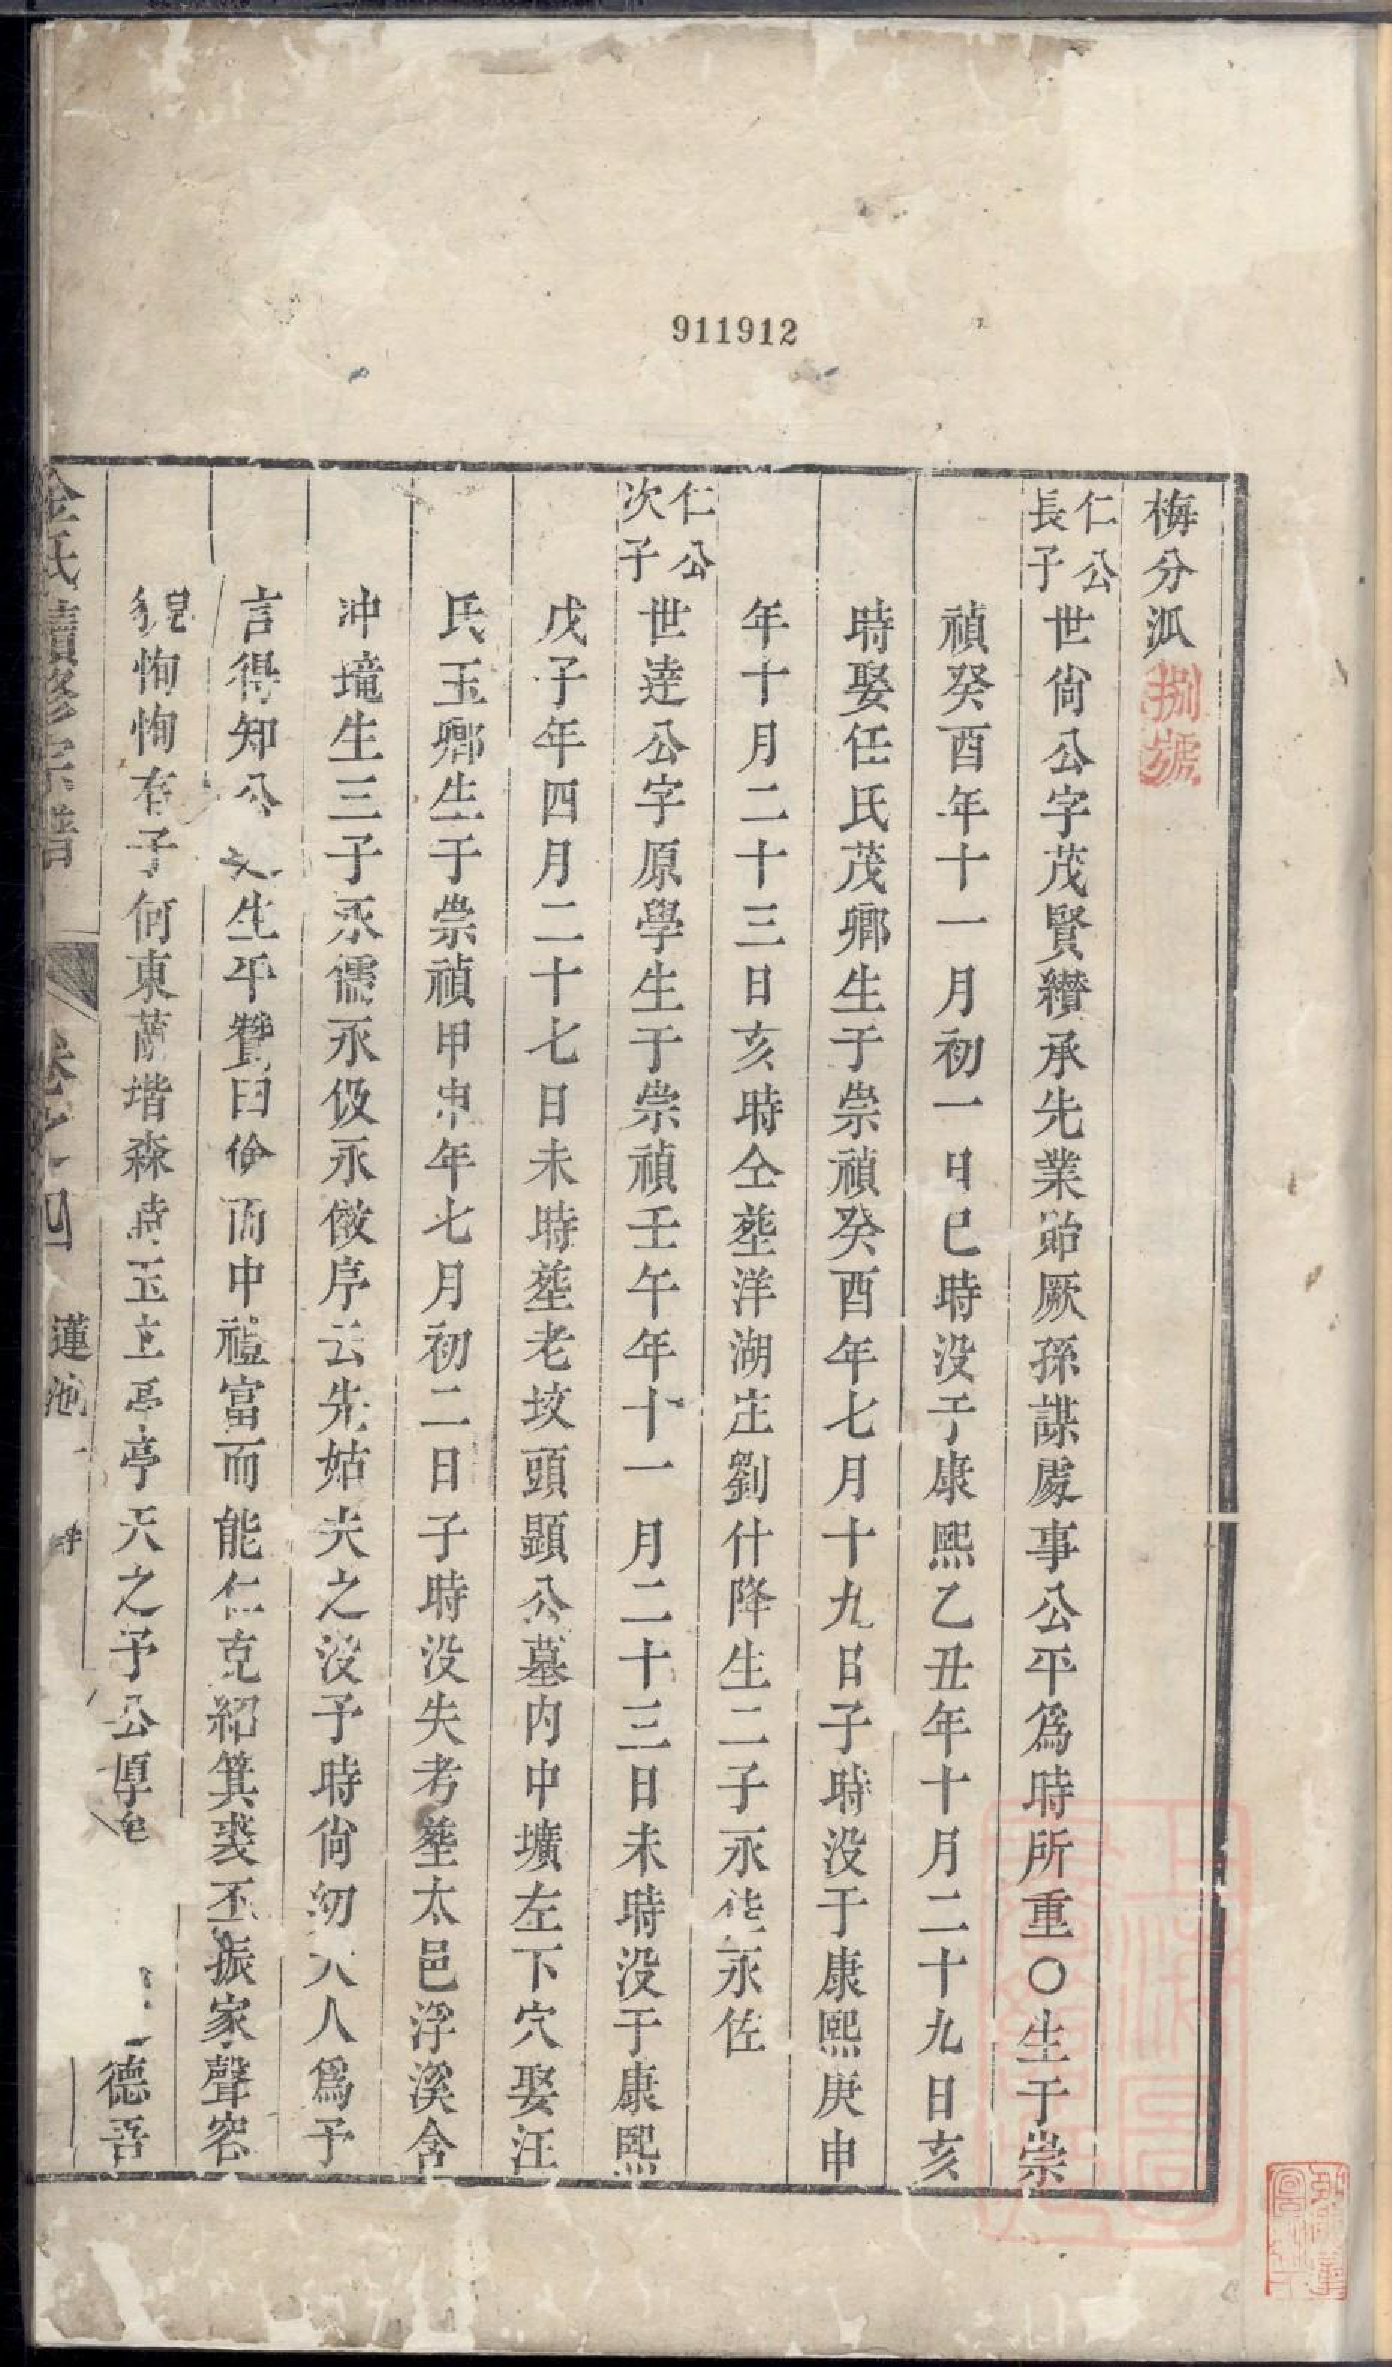 911912
梅分派
捌號
仁公長子世尙公字茂賢纘承先業貽厥孫謀處事公平爲時所重〇生于崇
禎癸酉年十一月初一日巳時没于康熙乙丑年十月二十九日亥
時娶任氏茂卿生于崇禎癸酉年七月十九日子時没于康熙庚申
年十月二十三日亥時仝塟洋湖庄劉什降生二子永佳永佐
仁公次子世逹公字原學生于崇禎壬午年十一月二十三日未時没于康熙
戊子年四月二十七日未時塟老坟頭顯公墓内中壙左下穴娶汪
氏玉卿生于崇禎甲申年七月初二日子時没失考塟太邑浮溪舍
冲墖生三子永儒永伋永僘序云先姑夫之没予時尙幼大人爲予
言得知公之生平贊曰儉而中禮富而能仁克紹箕裘丕振家聲容
貌恂恂有子何東蘭堦森森玉立亭亭天之予公厚 德吾
金氏續修宗譜 卷之四 蓮池